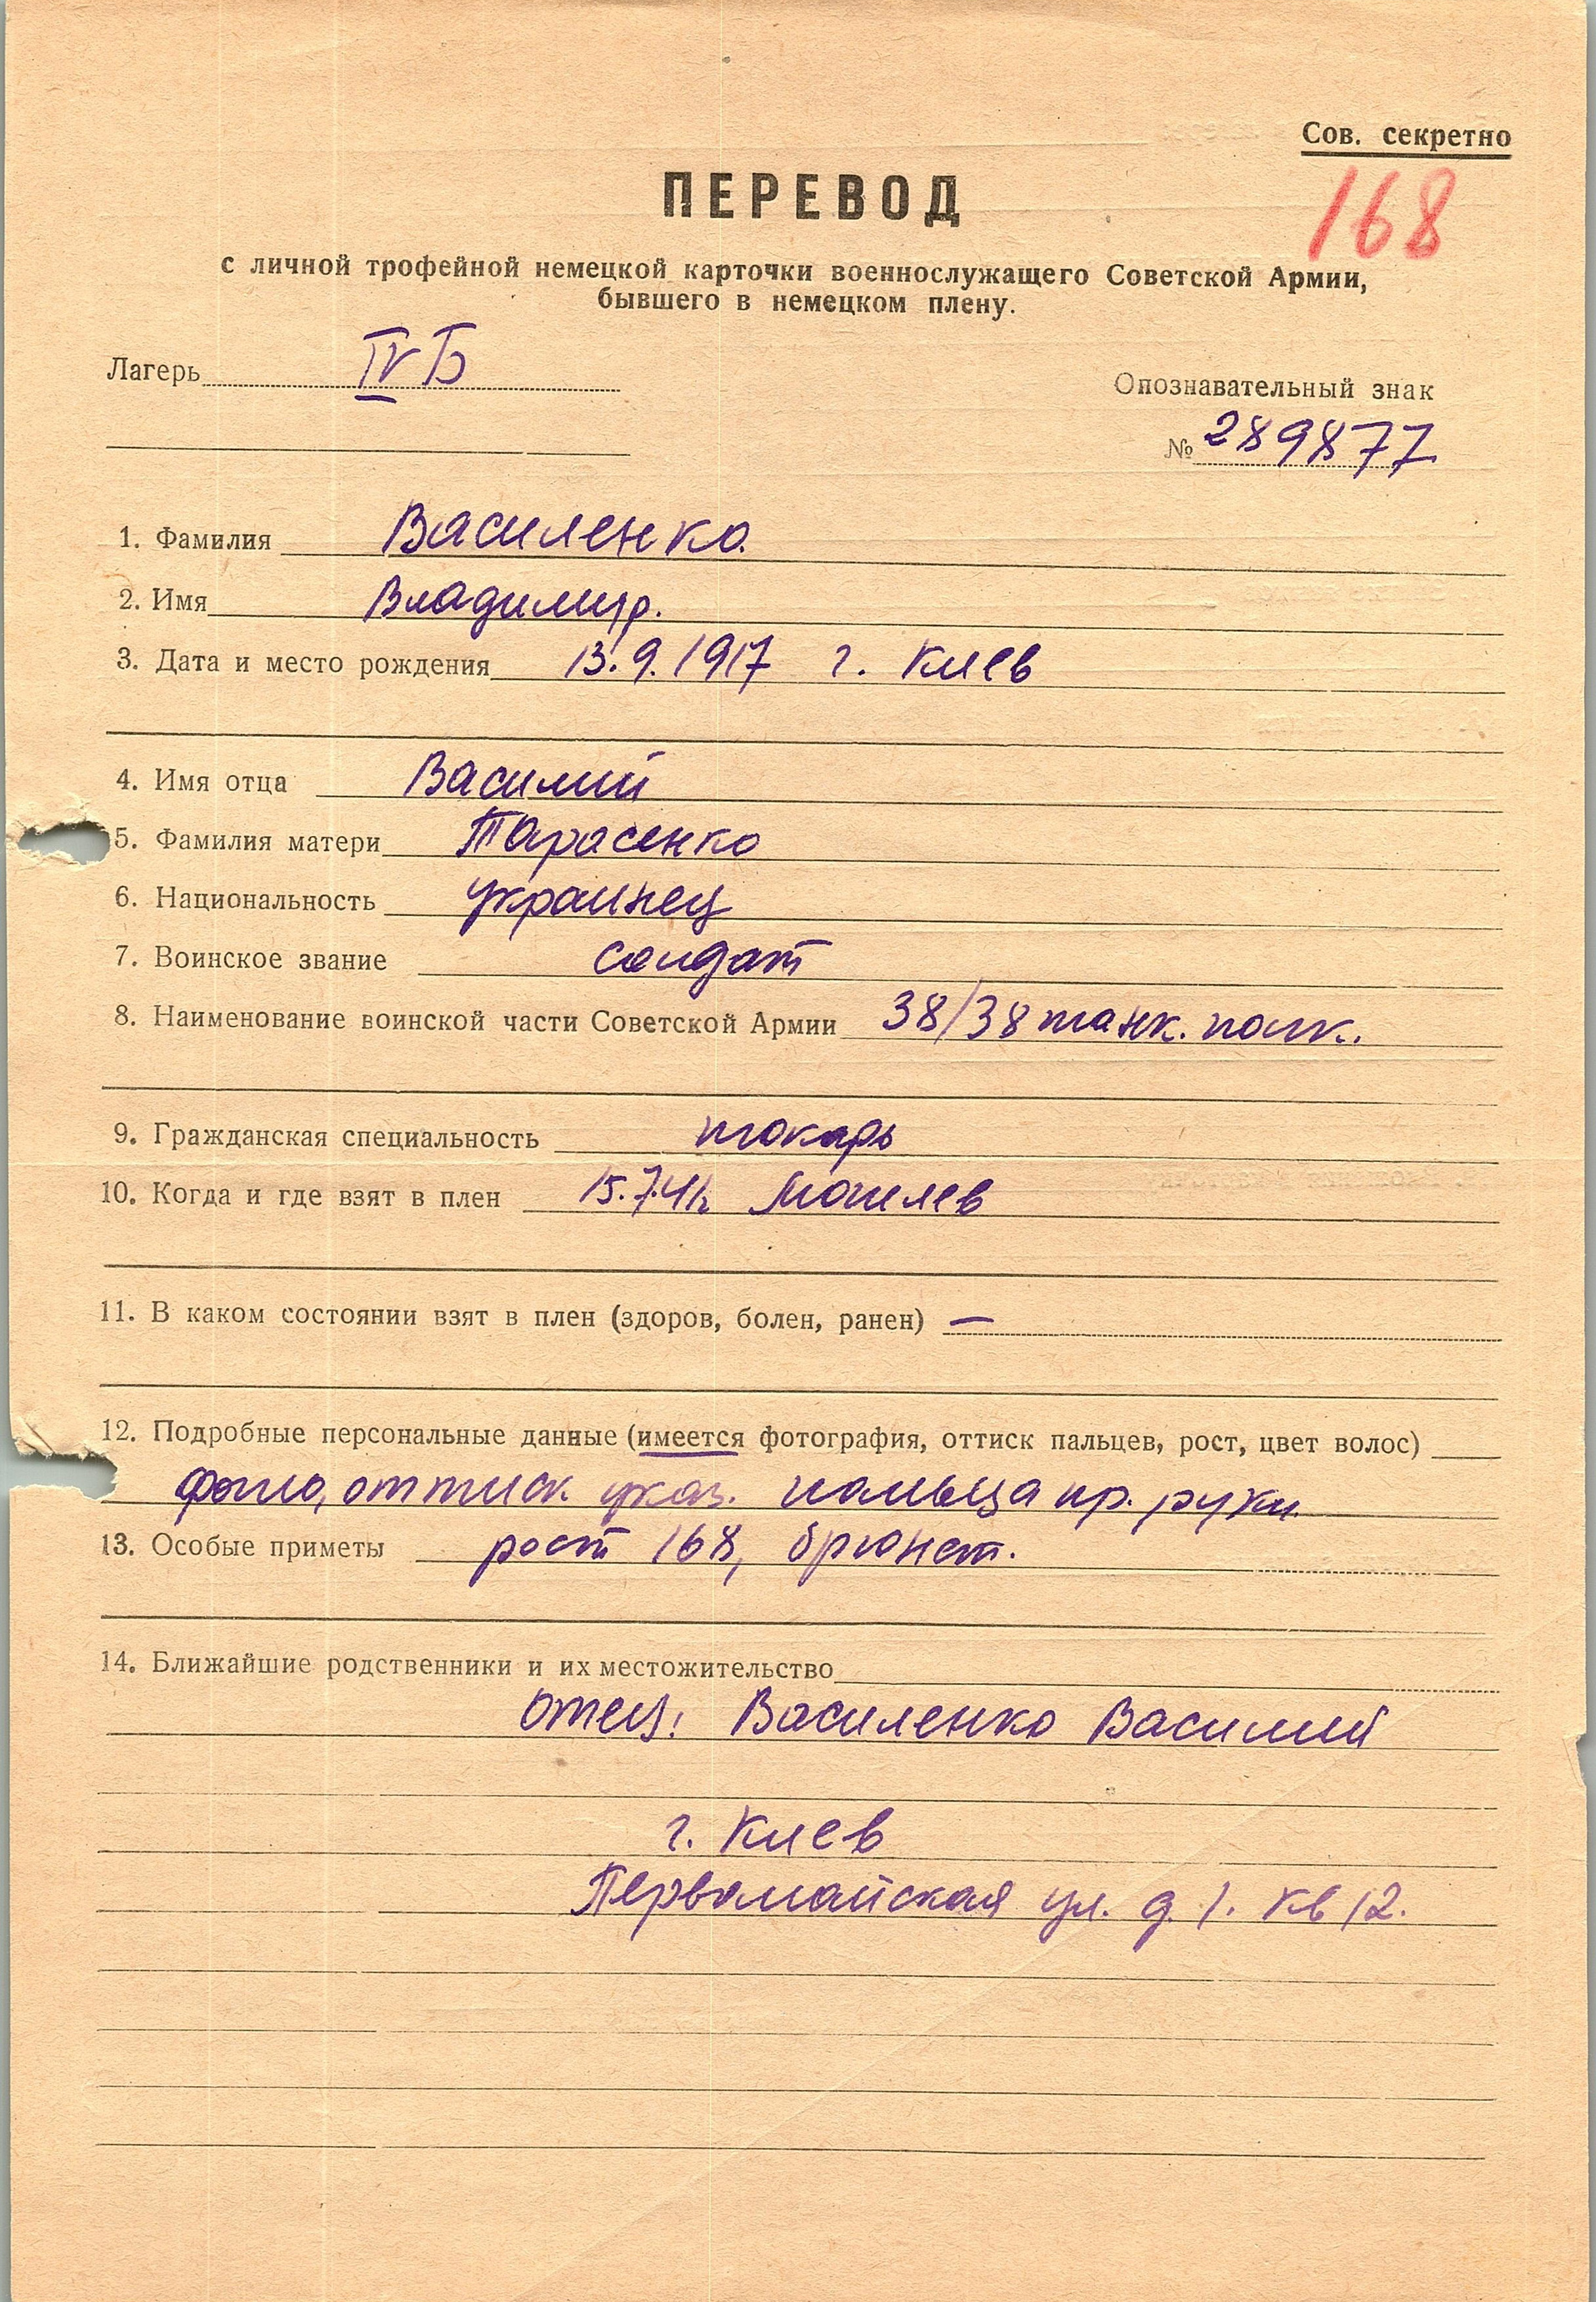 Сов. секретно
168
ПЕРЕВОД
с личной трофейной немецкой карточки военнослужащего Советской Армии,
бывшего в немецком плену.
Лагерь IV Б
Опознавательный знак
№ 289877
1. Фамилия Василенко
2. Имя Владимир.
3. Дата и место рождения 13.9.1917 г. Киев
4. Имя отца Василий
5. Фамилия матери Тарасенко
6. Национальность украинец
7. Воинское звание солдат
8. Наименование воинской части Советской Армии 38/38 танк. полк.
9. Гражданская специальность токарь
10. Когда и где взят в плен 15.7.41г. Могилев
11. В каком состоянии взят в плен (здоров, болен, ранен) —
12. Подробные персональные данные (имеется фотография, оттиск пальцев, рост, цвет волос)
фото, оттиск указ. пальца пр. руки
13. Особые приметы рост 168, брюнет.
14. Ближайшие родственники и их местожительство
отец: Василенко Василий
г. Киев
Первомайская ул. д. 1. кв 12.